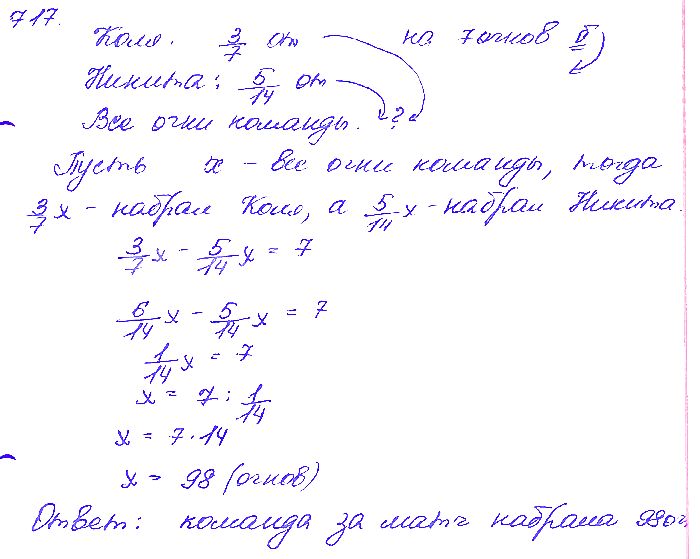 717.
Коля. 3/7 от на 7 очков б
Никита: 5/14 от
Все очки команды. ?
Пусть x – все очки команды, тогда
3/7 x – набрал Коля, а 5/14 x – набрал Никита.
3/7 x – 5/14 x = 7
6/14 x – 5/14 x = 7
1/14 x = 7
x = 7 : 1/14
x = 7 · 14
x = 98 (очков)
Ответ: команда за матч набрала 98 оч